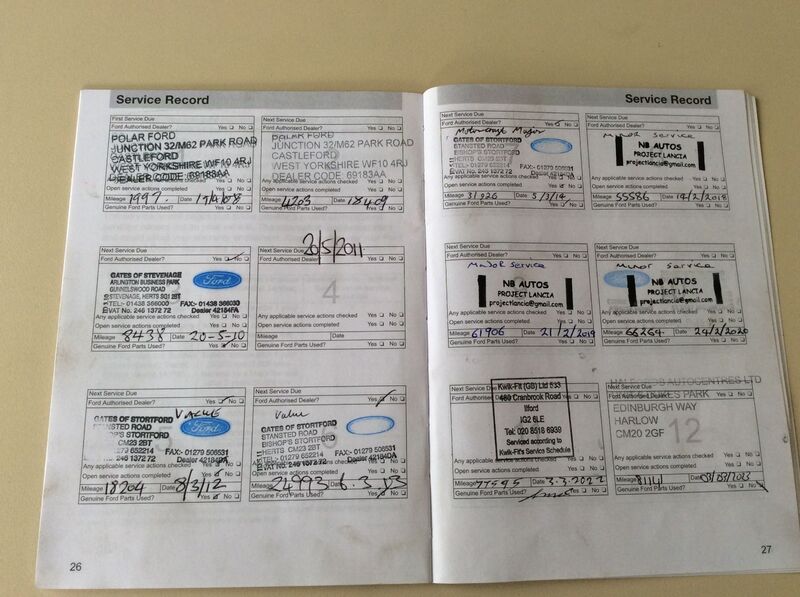 Service Record
First Service Due
Ford Authorised Dealer? Yes No
POLAR FORD
JUNCTION 32/M62 PARK ROAD
CASTLEFORD
WEST YORKSHIRE WF10 4RJ
DEALER CODE: 69183AA
Mileage 1997 Date
Genuine Ford Parts Used? Yes No
Next Service Due
Ford Authorised Dealer? Yes No
POLAR FORD
JUNCTION 32/M62 PARK ROAD
CASTLEFORD
WEST YORKSHIRE WF10 4RJ
DEALER CODE: 69183AA
Any applicable service actions checked Yes No
Open service actions completed Yes No
Mileage 4203 Date 18409
Genuine Ford Parts Used? Yes No
Next Service Due
Ford Authorised Dealer? Yes No
GATES OF STEVENAGE
ARLINGTON BUSINESS PARK
GUNNELSWOOD ROAD
STEVENAGE, HERTS SG1 2BT
TEL:- 01438 356000 FAX:- 01438 356030
VAT No. 246 1372 72 Dealer 42184FA
Ford
Open service actions completed Yes No
Mileage 8438 Date 20-5-10
Genuine Ford Parts Used? Yes No
20/5/2011
Next Service Due
Ford Authorised Dealer? Yes No
4
Any applicable service actions checked Yes No
Open service actions completed Yes No
Mileage Date
Genuine Ford Parts Used? Yes No
Next Service Due
Ford Authorised Dealer? Yes No
VALUE
GATES OF STORTFORD
STANSTED ROAD
BISHOP'S STORTFORD
HERTS CM23 2BT
01279 652214 FAX:- 01279 506531
Ford
Any applicable service actions checked Yes No
Open service actions completed Yes No
Mileage 18204 Date 8/3/12
Genuine Ford Parts Used? Yes No
Next Service Due
Ford Authorised Dealer? Yes No
Value
GATES OF STORTFORD
STANSTED ROAD
BISHOP'S STORTFORD
HERTS CM23 2BT
TEL:- 01279 652214 FAX:- 01279 506531
VAT No. 246 1372 72
Open service actions completed Yes No
Mileage 24993 Date 6.3.13
Genuine Ford Parts Used? Yes No
26
Service Record
Next Service Due
Ford Authorised Dealer? Yes No
Motorcraft Major
GATES OF STORTFORD
STANSTED ROAD
BISHOP'S STORTFORD
HERTS CM23 2BT
FAX:- 01279 506531
Open service actions completed Yes No
Mileage 31926 Date 5/3/14
Genuine Ford Parts Used? Yes No
Next Service Due
Minor Service
NB AUTOS
PROJECT LANCIA
projectlancia@gmail.com
Any applicable service actions checked Yes No
Open service actions completed Yes No
Mileage 55586 Date 14/2/2018
Genuine Ford Parts Used? Yes No
Next Service Due
Ford Authorised Dealer? Yes No
Major Service
NB AUTOS
PROJECT LANCIA
projectlancia@gmail.com
Open service actions completed Yes No
Mileage 61906 Date 21/2/2019
Genuine Ford Parts Used? Yes No
Next Service Due
Ford Authorised Dealer? Yes No
Minor Service
NB AUTOS
PROJECT LANCIA
projectlancia@gmail.com
Open service actions completed Yes No
Mileage 66264 Date 24/2/2020
Genuine Ford Parts Used? Yes No
Next Service Due
Kwik-Fit (GB) Ltd
Cranbrook Road
Ilford
IG2 6LE
Tel: 020 8518 6939
Serviced according to
Kwik-Fit's Service Schedule
Mileage 77595 Date 3.3.2022
Genuine Ford Parts Used? Yes No
Next Service Due
Ford Authorised Dealer? Yes No
EDINBURGH WAY
HARLOW
CM20 2GF
12
Any applicable service actions checked Yes No
Open service actions completed Yes No
Mileage 81141 Date 03/03/2023
Genuine Ford Parts Used? Yes No
27